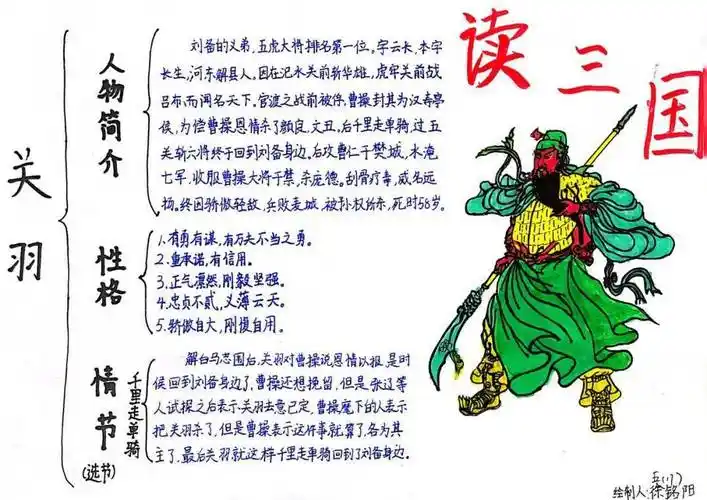 读三国
关羽
人物简介
刘备的义弟,五虎大将排名第一位。字云长,本字
长生,河东解县人。因在汜水关前斩华雄,虎牢关前战
吕布,而闻名天下,官渡之战前被俘,曹操封其为汉寿亭
侯,为偿曹操恩情杀了颜良、文丑,后千里走单骑,过五
关斩六将终于回到刘备身边,后攻曹仁于樊城,水淹
七军,收服曹操大将于禁,杀庞德。刮骨疗毒,威名远
扬。终因骄傲轻敌,兵败麦城,被孙权所杀,死时58岁。
性格
1.有勇有谋,有万夫不当之勇。
2.重承诺,有信用。
3.正气凛然,刚毅坚强。
4.忠贞不贰,义薄云天。
5.骄傲自大,刚愎自用。
情节
(选节)
千里走单骑
解白马芯围后,关羽对曹操说恩情以报,是时
侯回到刘备身边了,曹操还想挽留,但是张辽等
人试探之后表示关羽去意已定,曹操麾下的人表示
把关羽杀了,但是曹操表示这件事就算了,各为其
主了,最后关羽就这样千里走单骑回到了刘备身边.
绘制人:徐铭阳